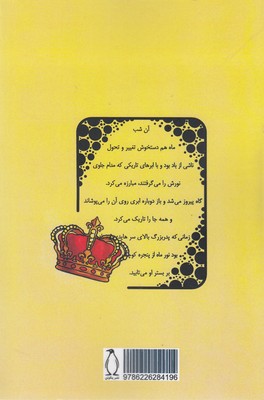 آن شب
ماه هم دستخوش تغییر و تحول
ناشی از باد بود و با ابرهای تاریکی که مدام جلوی
نورش را می‌گرفتند، مبارزه می‌کرد.
گاه پیروز می‌شد و باز دوباره ابری روی آن را می‌پوشاند
و همه جا را تاریک می‌کرد.
زمانی که پدربزرگ بالای سر
بود نور ماه از پنجره
بر بستر او می‌تابید.
9786226284196